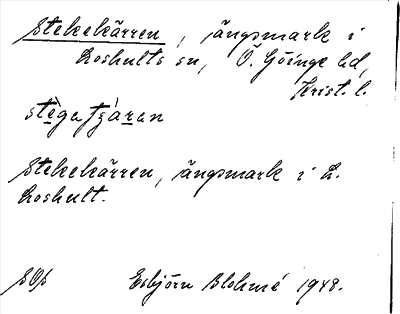 Stekekärren, ängsmark i
Loshults sn, Ö. Göinge hd,
Krist. l.
stègatʃàran
Stekekärren, ängsmark i L.
Loshult.
SOP
Esbjörn Blohmé 1948.